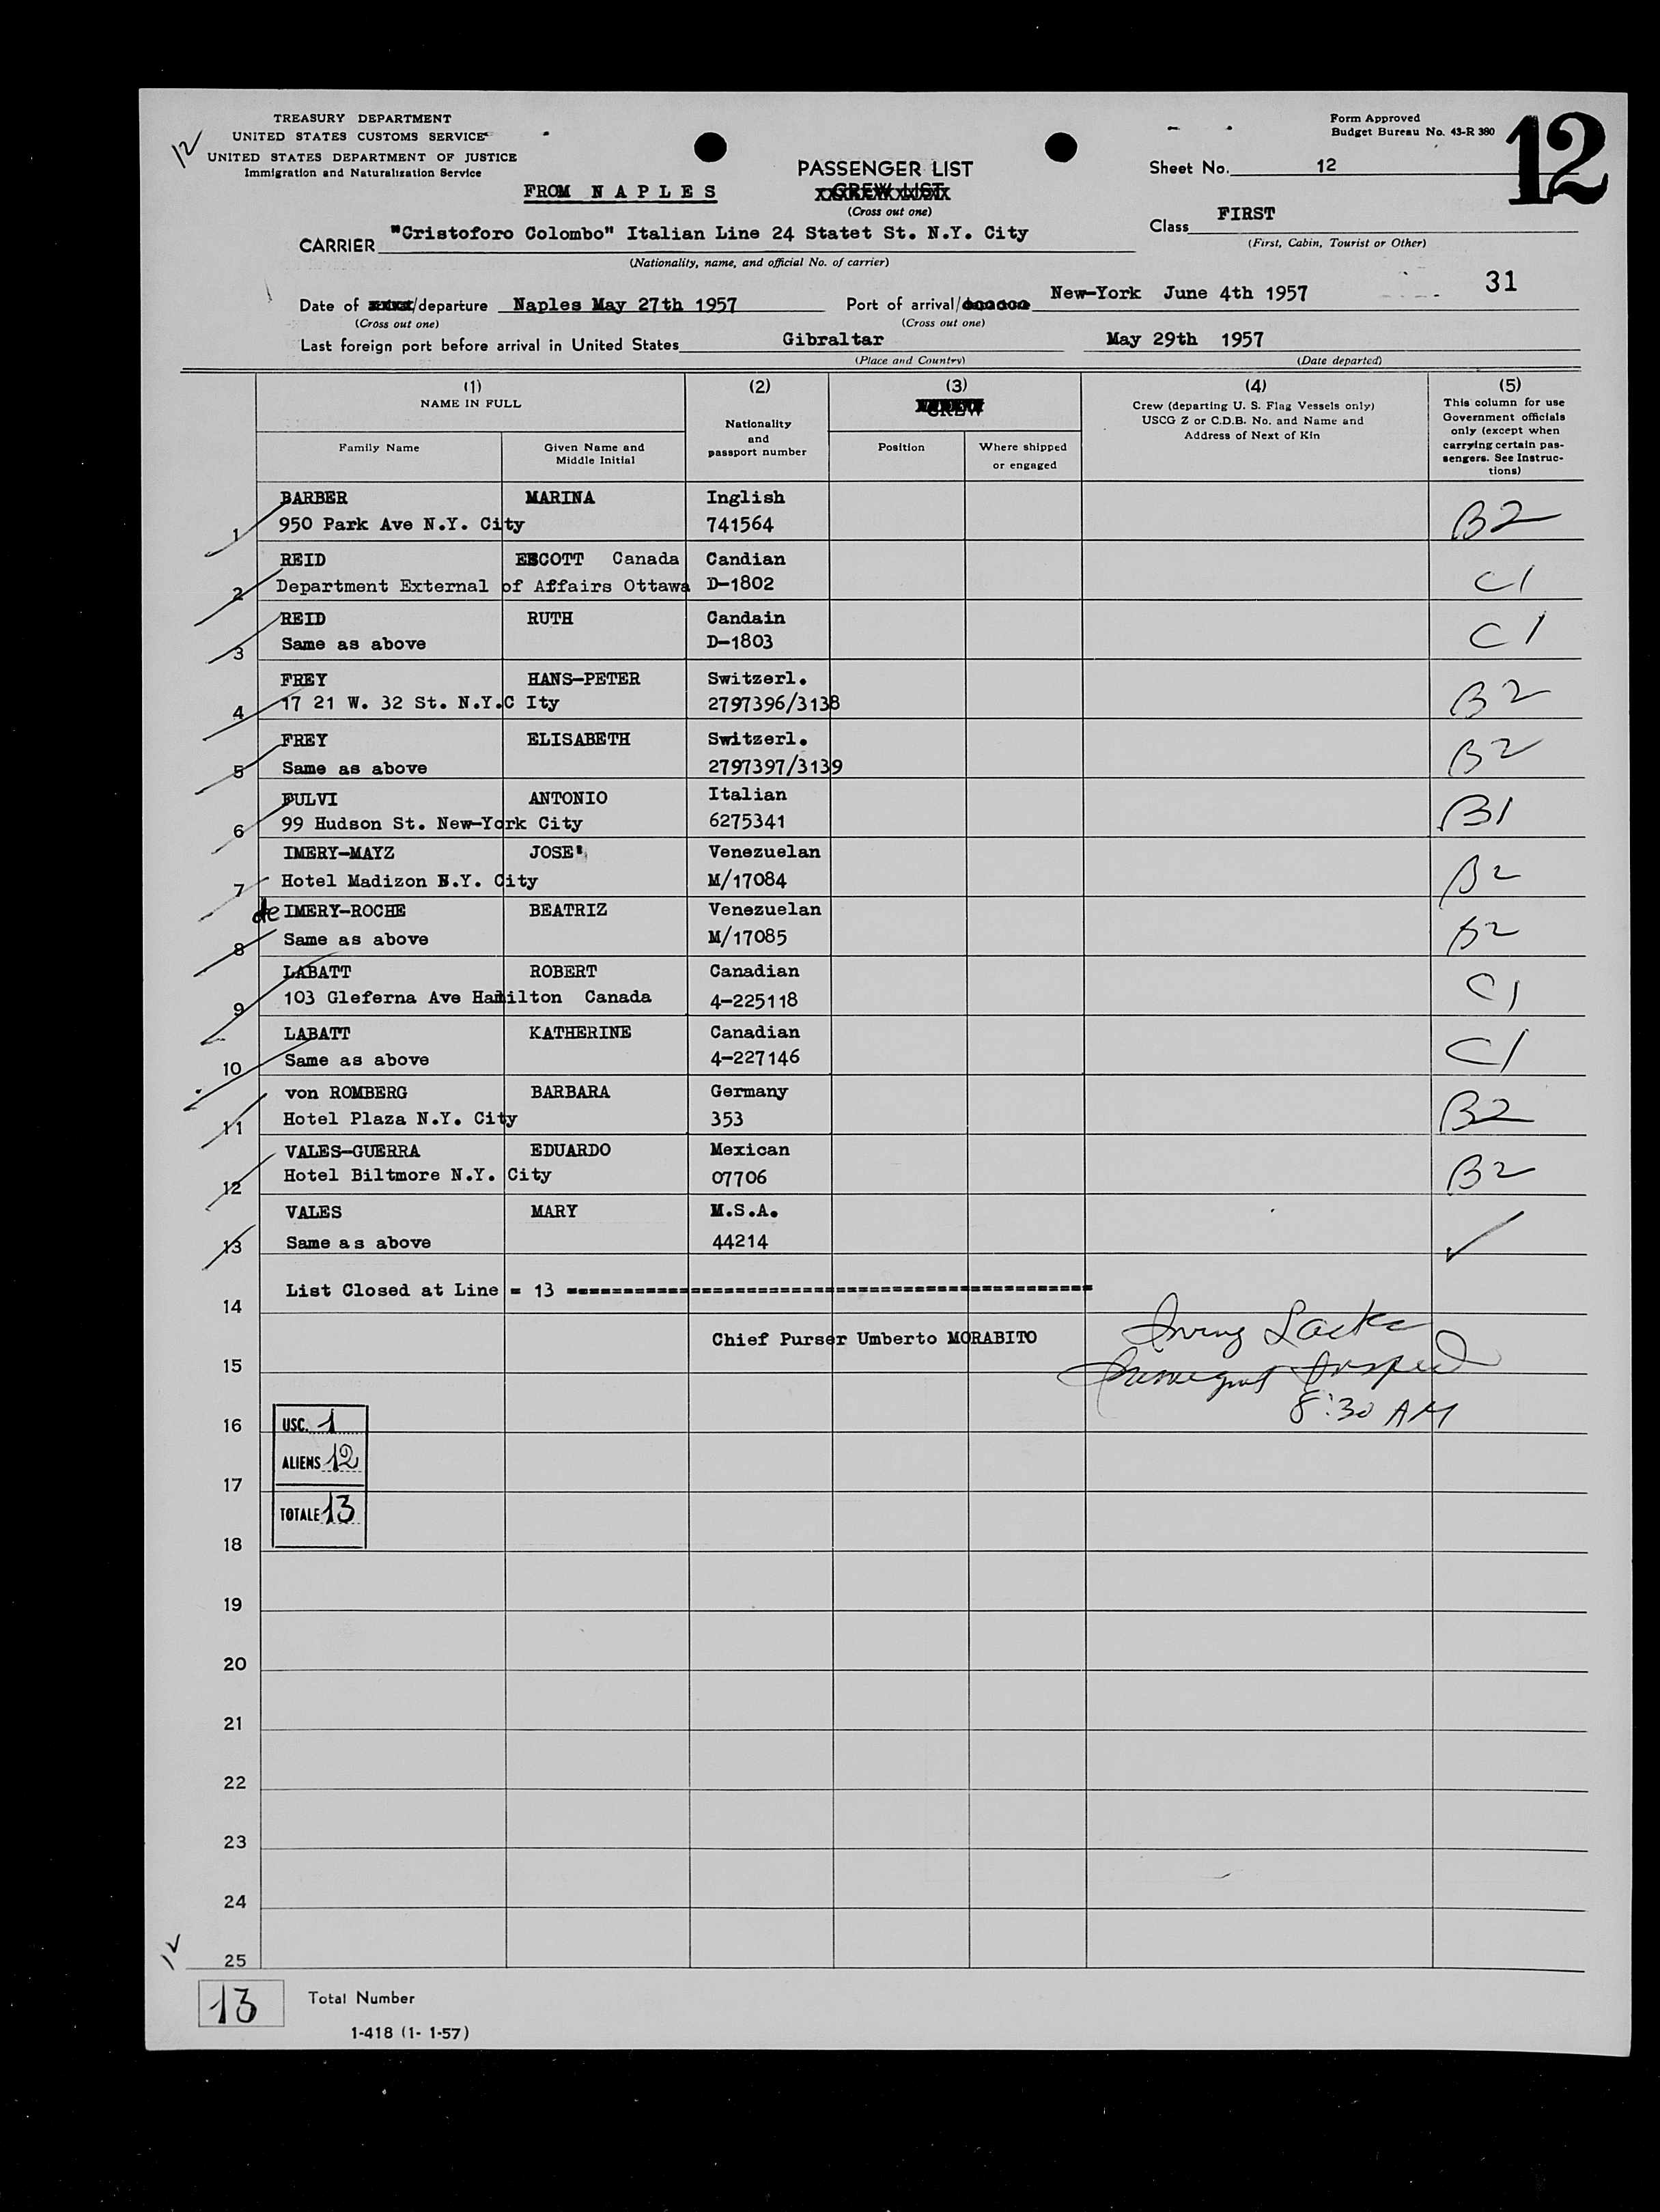 TREASURY DEPARTMENT
UNITED STATES CUSTOMS SERVICE
UNITED STATES DEPARTMENT OF JUSTICE
Immigration and Naturalization Service
12
FROM N A P L E S
PASSENGER LIST
CREW LIST
(Cross out one)
Form Approved
Budget Bureau No. 43-R 380
12
Sheet No. 12
Class FIRST
(First, Cabin, Tourist or Other)
CARRIER "Cristoforo Colombo" Italian Line 24 Statet St. N.Y. City
(Nationality, name, and official No. of carrier)
31
Date of /departure Naples May 27th 1957 Port of arrival/ New-York June 4th 1957
(Cross out one) (Cross out one)
Last foreign port before arrival in United States Gibraltar May 29th 1957
(Place and Country) (Date departed)
(1) (2) (3) (4) (5)
NAME IN FULL
Family Name
Given Name and
Middle Initial
Nationality
and
passport number
CREW
Position
Where shipped
or engaged
Crew (departing U. S. Flag Vessels only)
USCG Z or C.D.B. No. and Name and
Address of Next of Kin
This column for use
Government officials
only (except when
carrying certain pas-
sengers. See Instruc-
tions)
BARBER MARINA Inglish
1 950 Park Ave N.Y. City 741564 B2
REID ESCOTT Canada Candian
2 Department External of Affairs Ottawa D-1802 C1
REID RUTH Candain
3 Same as above D-1803 C1
FREY HANS-PETER Switzerl.
4 17 21 W. 32 St. N.Y.C Ity 2797396/3138 B2
FREY ELISABETH Switzerl.
5 Same as above 2797397/3139 B2
FULVI ANTONIO Italian
6 99 Hudson St. New-York City 6275341 B1
IMERY-MAYZ JOSE' Venezuelan
7 Hotel Madizon N.Y. City M/17084 B2
de IMERY-ROCHE BEATRIZ Venezuelan
8 Same as above M/17085 B2
LABATT ROBERT Canadian
9 103 Gleferna Ave Hamilton Canada 4-225118 C1
LABATT KATHERINE Canadian
10 Same as above 4-227146 C1
von ROMBERG BARBARA Germany
11 Hotel Plaza N.Y. City 353 B2
VALES-GUERRA EDUARDO Mexican
12 Hotel Biltmore N.Y. City 07706 B2
VALES MARY M.S.A.
13 Same as above 44214
List Closed at Line = 13 ================================================
14
Chief Purser Umberto MORABITO Irving
15
8:30 AM
16 USC. 1
ALIENS 12
17
TOTALE 13
18
19
20
21
22
23
24
12
25
13 Total Number
1-418 (1- 1-57)